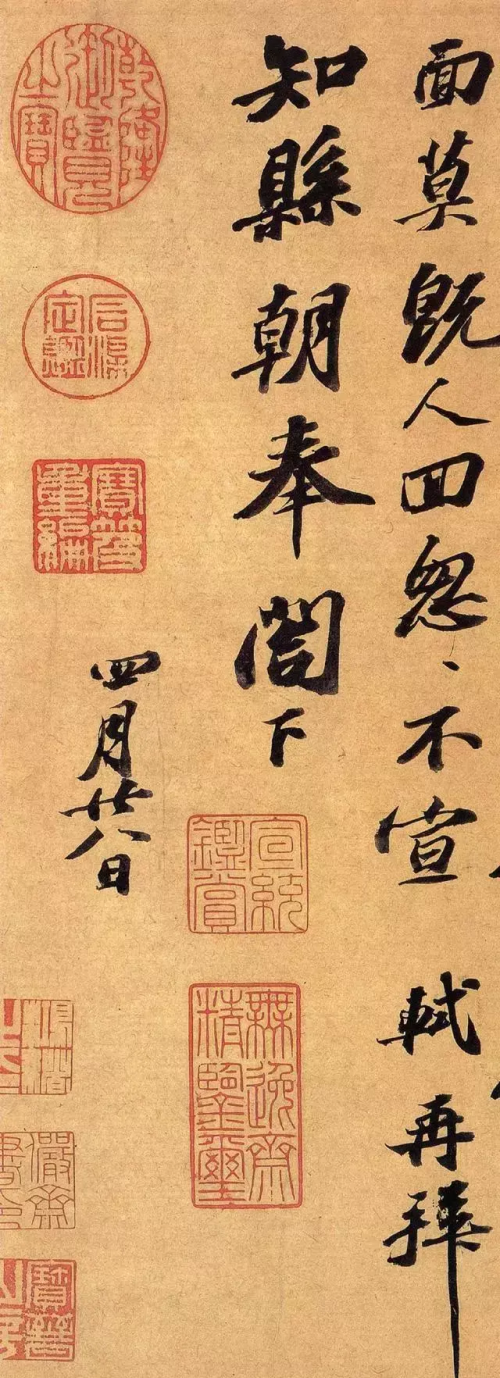 面莫既人回怱、不宣 軾再拜
知縣朝奉閤下
四月廿八日
乾隆御覽之寶
石渠定鑑
寶笈重編
宣統鑑賞
無逸齋精鑒璽